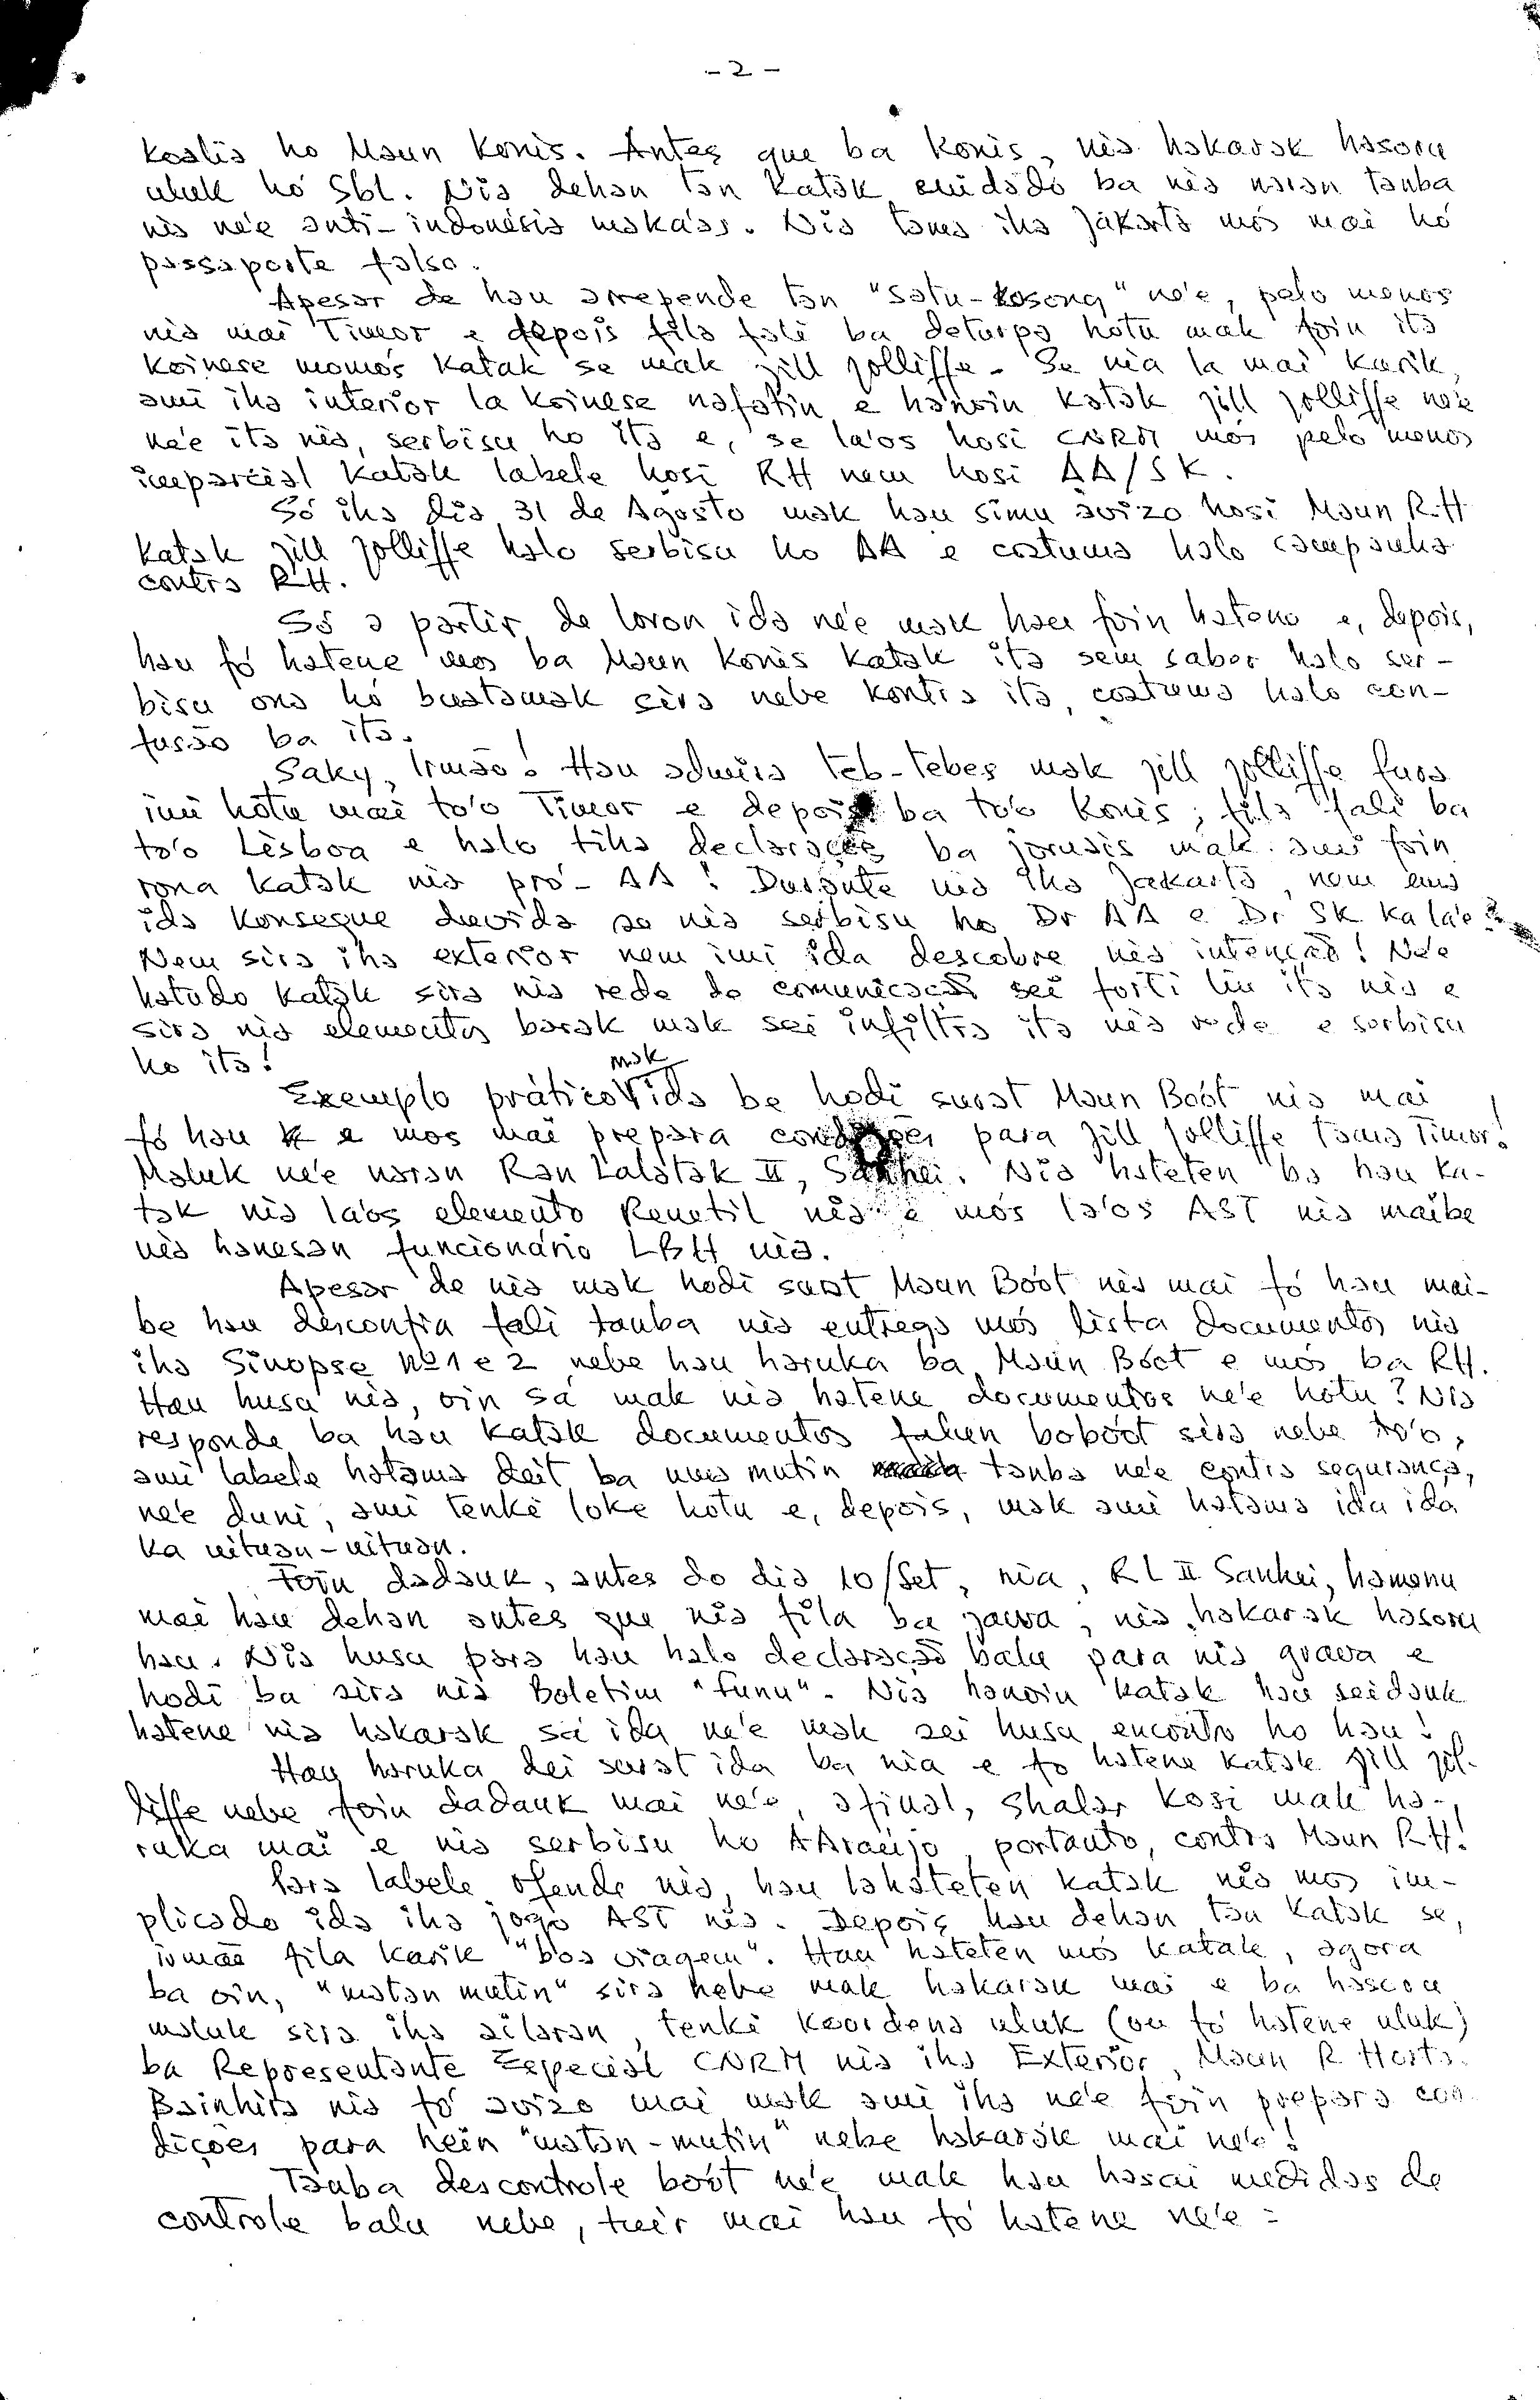 - 2 -
koalia ho Maun Konis. Antes que ba Konis, nia hakarak hasoru
uluk hó Sbl. Nia dehan tan katak cuidado ba nia naran tanba
nia ne'e anti-indonésia maka'as. Nia tama iha Jakarta mós mai hó
passaporte falso.
Apesar de hau arrepende tan "Satu-kosong" ne'e, pelo menos
nia mai Timor e depois fila fali ba deturpa hotu mak foin ita
koinese momós katak se mak Jill Jolliffe. Se nia la mai karik,
ami iha interior la koinese nafatin e hanoin katak Jill Jolliffe ne'e
ne'e ita nia, serbisu ho ita e, se la'os hosi CNRM mós pelo menos
imparcial katak labele hosi RH nem hosi AA/SK.
Só iha dia 31 de Agosto mak hau simu avizo hosi Maun R.H
katak Jill Jolliffe halo serbisu ho AA e costuma halo campanha
contra RH.
Só a partir de loron ida ne'e mak hau foin hatene e, depois,
hau fó hatene mos ba Maun Konis katak ita sem saber halo ser-
bisu ona hó buatamak sira nebe kontra ita, costuma halo con-
fusão ba ita.
Saky, Irmão! Hau admira teb-tebes mak Jill Jolliffe fura
imi hotu mai to'o Timor e depois ba to'o Konis; fila fali ba
to'o Lisboa e halo tiha declarações ba jornais mak ami foin
rona katak nia pró-AA! Durante nia iha Jakarta, nem ema
ida konsegue duvida se nia serbisu ho Dr AA e Dr SK ka la'e?
Nem sira iha exterior nem imi ida descobre nia intenção! Ne'e
hatudo katak sira nia rede de comunicação sei forti liu ita nia e
sira nia elementos barak mak sei infiltra ita nia rede e serbisu
ho ita!
mak
Exemplo prático ida be hodi surat Maun Boót nia mai
fó hau e mos mai prepara condições para Jill Jolliffe tama Timor!
Maluk ne'e naran Ran Lalatak II, Sankei. Nia hateten ba hau ka-
tak nia la'os elemento Renetil nia e mós la'os AST nia maibe
nia hanesan funcionário LBH nia.
Apesar de nia mak hodi surat Maun Boót nia mai fó hau mai-
be hau desconfia fali tanba nia entrega mós lista documentos nia
iha Sinopse Nº 1 e 2 nebe hau haruka ba Maun Boót e mós ba RH.
Hau husa nia, oin sá mak nia hatene documentos ne'e hotu? Nia
responde ba hau katak documentos fahen boboót sira nebe to'o,
ami labele hatama deit ba uma mutin tanba ne'e contra segurança,
ne'e duni, ami tenké loke hotu e, depois, mak ami hatama ida ida
ka nituan-nituan.
Foin dadauk, antes do dia 10/Set, nia, RL II Sankei, hamanu
mai hau dehan antes que nia fila ba Jawa, nia hakarak hasoru
hau. Nia husu para hau halo declaração balu para nia grava e
hodi ba sira nia Boletim "Funu". Nia hanoin katak hau seidauk
hatene nia hakarak sá ida ne'e mak sei husu encontro ho hau!
Hau haruka dei surat ida ba nia e fo hatene katak Jill Jol-
liffe nebe foin dadauk mai ne'e, afinal, Shalar Kosi mak ha-
ruka mai e nia serbisu ho AAraújo, portanto, contra Maun RH!
Para labele ofende nia, hau lahateten katak nia mos im-
plicado ida iha jogo AST nia. Depois hau dehan tan katak se,
irmão fila karik "boa viagem". Hau hateten mós katak, agora
ba oin, "matan mutin" sira nebe mak hakarak mai e ba hasoru
maluk sira iha ailaran, tenké koordena uluk (ou fó hatene uluk)
ba Representante Especial CNRM nia iha Exterior, Maun R Horta.
Bainhira nia fó avizo mai mak ami iha ne'e foin prepara con-
dições para hein "matan-mutin" nebe hakarak mai ne'e!
Tanba descontrole boót ne'e mak hau hasai medidas de
controle balu nebe, tuir mai hau fó hatene ne'e: